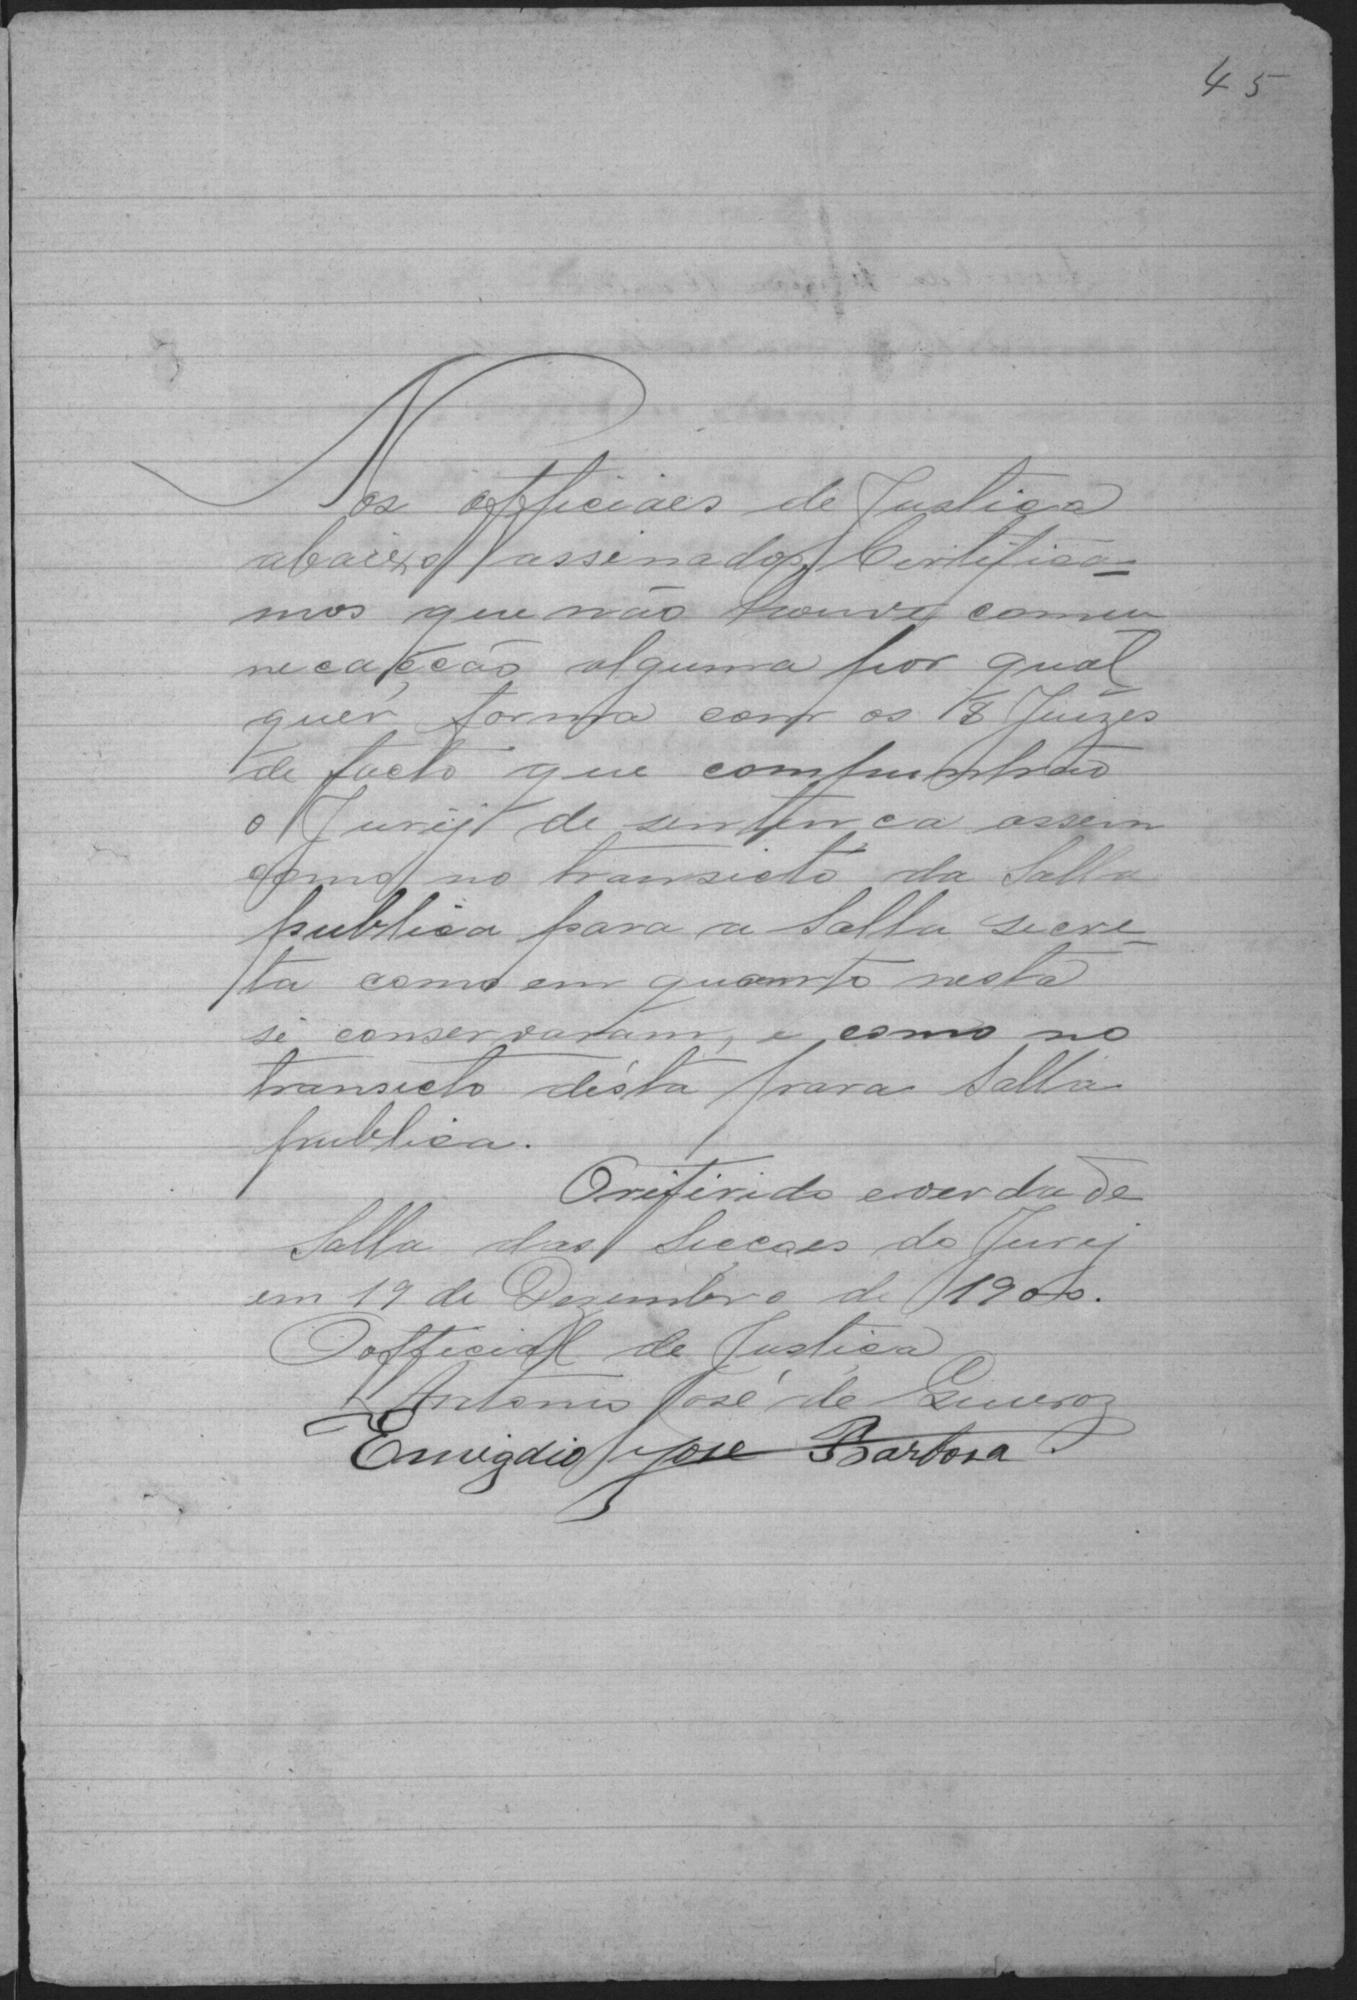 45
Nos officiaes de Justiça
abaixo assinados Certifica=
mos que não houve comu
necacção alguma por qual
quer forma com os 8 Juizes
de facto que
o Jurij de sentenca assim
como no transicto da Salla
publica para a Salla secre-
ta como em quanto nesta
se conservaram, e como no
transicto désta para Salla
publica.
Oriferido e verdade
Salla das Seccoes do Jurij
em 19 de Dezembro de 1900.
O official de Justica
Antonio José de Queiroz
Emigdio Jose Barbosa